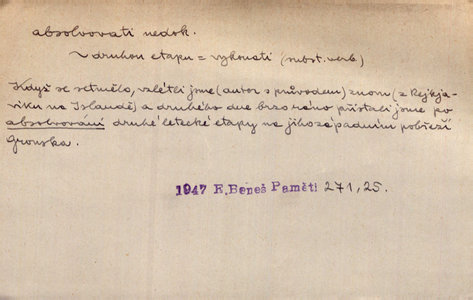 absolvovati nedok.
~ druhou etapu = vykonati (subst. verb.)
Když se setmělo, vzlétli jsme (autor s průvodem) znovu (z Rejkja-
viku na Islandě) a druhého dne brzo ráno přistali jsme po
absolvování druhé letecké etapy na jihozápadním pobřeží
Gronska.
1947 E. Beneš Paměti 271, 25.